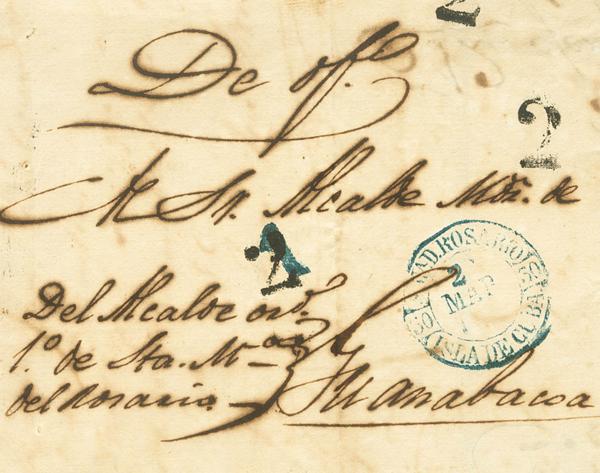 2
De off.º
2
Al Sr. Alcalde Mor. de
2
Del Alcalde ord.º
1.º de Sta. M.ª
del Rosario.
Guanabacoa
ROSARIO
2
MAR
ISLA DE CUBA